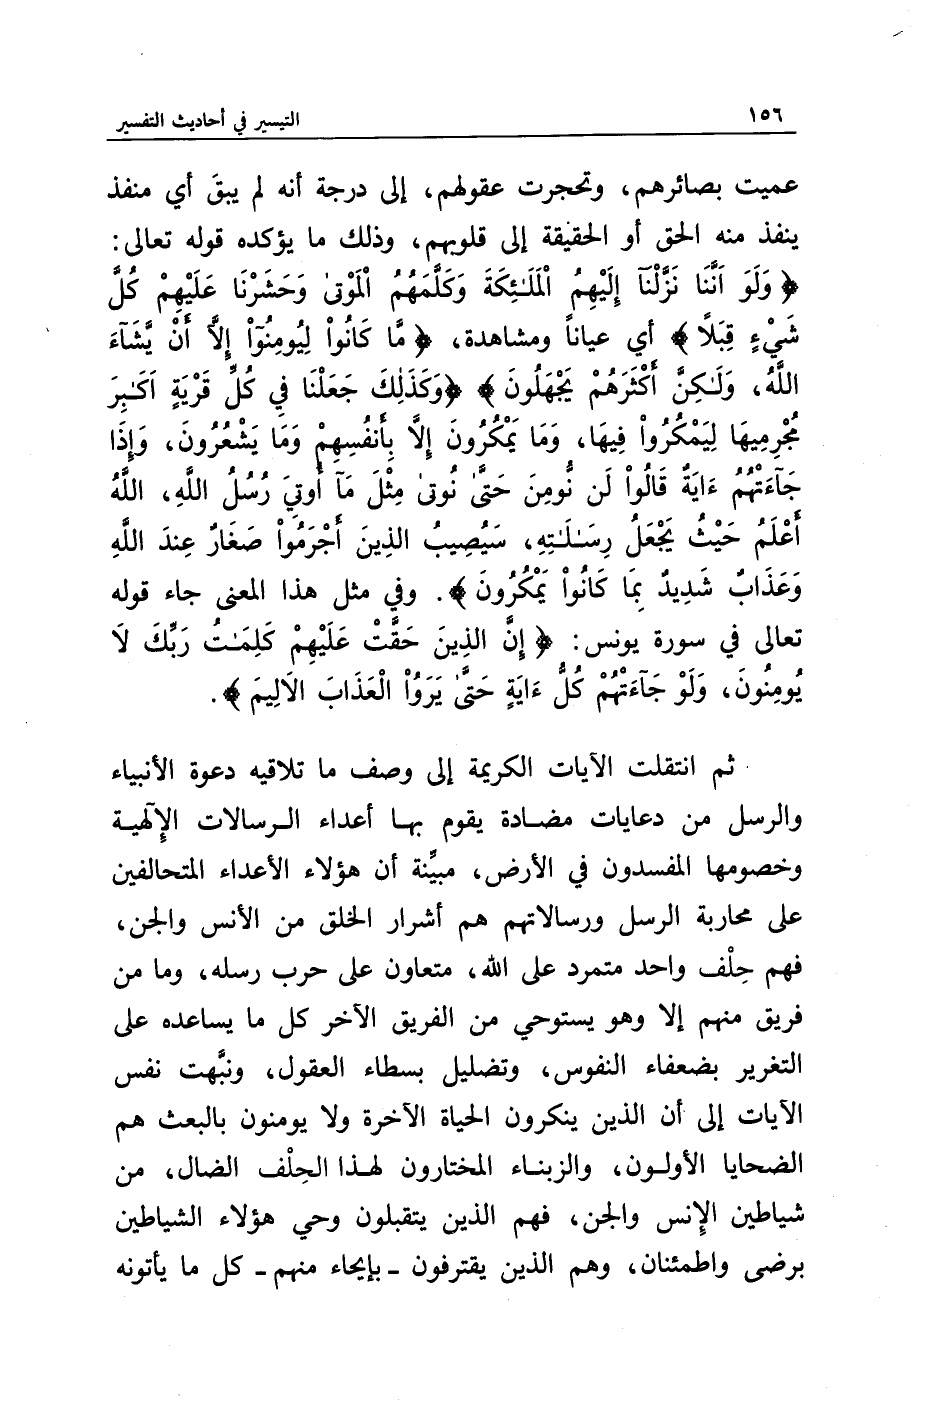 ١٥٦ التيسير في أحاديث التفسير
عميت بصائرهم، وتحجرت عقولهم، إلى درجة أنه لم يبقَ أي منفذ
ينفذ منه الحق أو الحقيقة إلى قلوبهم، وذلك ما يؤكده قوله تعالى:
﴿ وَلَوَ اَنَّنَا نَزَّلْنَآ إِلَيْهِمُ الْمَلَـٰئِكَةَ وَكَلَّمَهُمُ الْمَوْتىٰ وَحَشَرْنَا عَلَيْهِمْ كُلَّ
شَيْءٍ قِبَلًا ﴾ أي عياناً ومشاهدة، ﴿ مَّا كَانُواْ لِيُومِنُوٓاْ إِلَّا أَنْ يَّشَآءَ
اللَّهُ، وَلَـٰكِنَّ أَكْثَرَهُمْ يَجْهَلُونَ ﴾ ﴿وَكَذَٰلِكَ جَعَلْنَا فِي كُلِّ قَرْيَةٍ اَكَـٰبِرَ
مُجْرِمِيهَا لِيَمْكُرُواْ فِيهَا، وَمَا يَمْكُرُونَ إِلَّا بِأَنفُسِهِمْ وَمَا يَشْعُرُونَ، وَإِذَا
جَآءَتْهُمُ ءَايَةٌ قَالُواْ لَن نُّومِنَ حَتَّىٰ نُوتىٰ مِثْلَ مَآ أُوتِيَ رُسُلُ اللَّهِ، اللَّهُ
أَعْلَمُ حَيْثُ يَجْعَلُ رِسَـٰلَـٰتِهِ، سَيُصِيبُ الذِينَ أَجْرَمُواْ صَغَارٌ عِندَ اللَّهِ
وَعَذَابٌ شَدِيدٌ بِمَا كَانُواْ يَمْكُرُونَ ﴾. وفي مثل هذا المعنى جاء قوله
تعالى في سورة يونس: ﴿ إِنَّ الذِينَ حَقَّتْ عَلَيْهِمْ كَلِمَـٰتُ رَبِّكَ لَا
يُومِنُونَ، وَلَوْ جَآءَتْهُمْ كُلُّ ءَايَةٍ حَتَّىٰ يَرَوُاْ الْعَذَابَ الَالِيمَ ﴾.
ثم انتقلت الآيات الكريمة إلى وصف ما تلاقيه دعوة الأنبياء
والرسل من دعايات مضـادة يقوم بهـا أعداء الـرسالات الإلٓهيـة
وخصومها المفسدون في الأرض، مبيِّنة أن هؤلاء الأعداء المتحالفين
على محاربة الرسل ورسالاتهم هم أشرار الخلق من الأنس والجن،
فهم حِلْف واحد متمرد على الله، متعاون على حرب رسله، وما من
فريق منهم إلا وهو يستوحي من الفريق الآخر كل ما يساعده على
التغرير بضعفاء النفوس، وتضليل بسطاء العقول، ونبَّهت نفس
الآيات إلى أن الذين ينكرون الحياة الآخرة ولا يومنون بالبعث هم
الضحايا الأولـون، والزبنـاء المختارون لهـذا الحِلْف الضال، من
شياطين الإنس والجن، فهم الذين يتقبلون وحي هؤلاء الشياطين
برضى واطمئنان، وهم الذين يقترفون ـ بإيحاء منهم ـ كل ما يأتونه